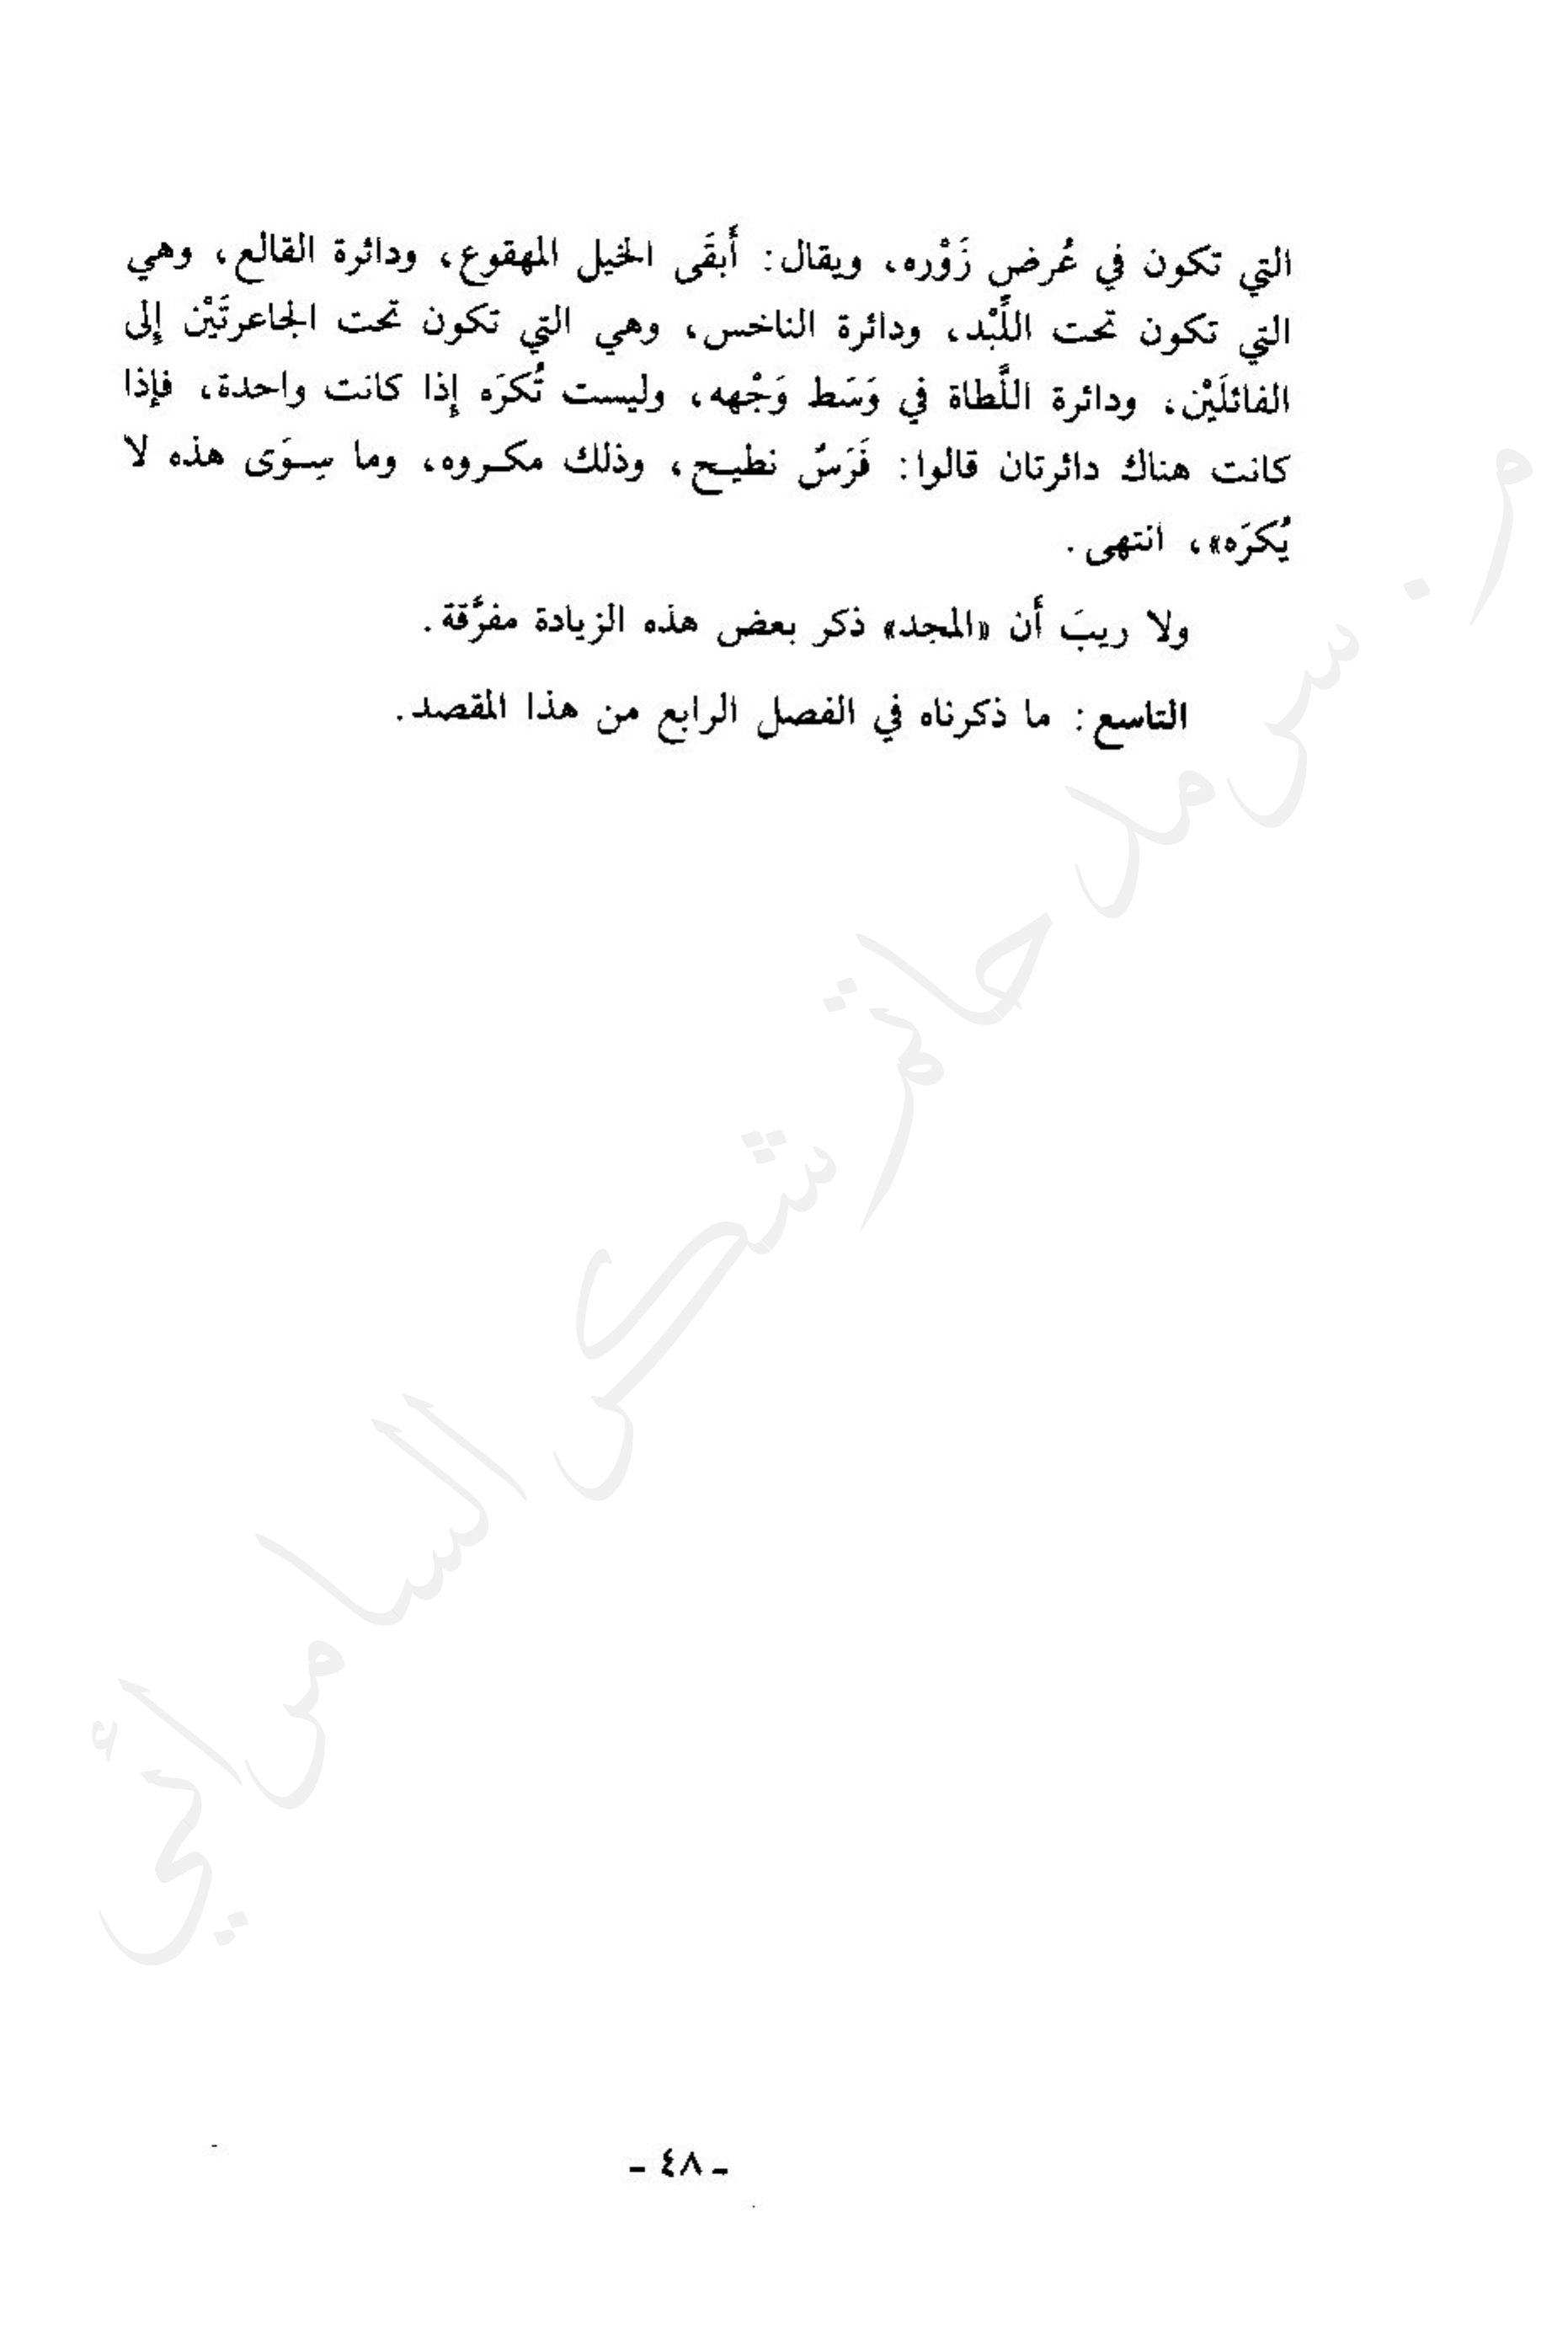 التي تكون في عُرضِ زَوْره، ويقال: أَبقَى الخيل المهقوع، ودائرة القالع، وهي
التي تكون تحت اللِّبْد، ودائرة الناخس، وهي التي تكون تحت الجاعرتَيْن إلى
الفائلَيْن، ودائرة اللَّطاة في وَسَط وَجْهه، وليست تُكرَه إذا كانت واحدة، فإذا
كانت هناك دائرتان قالوا: فَرَسٌ نطيح، وذلك مكروه، وما سِوَى هذه لا
يُكرَه»، انتهى.
ولا ريبَ أَن «المجد» ذكر بعض هذه الزيادة مفرَّقة.
التاسع: ما ذكرناه في الفصل الرابع من هذا المقصد.
من سرمد حاتم شكر السامرائي
ـ ٤٨ ـ